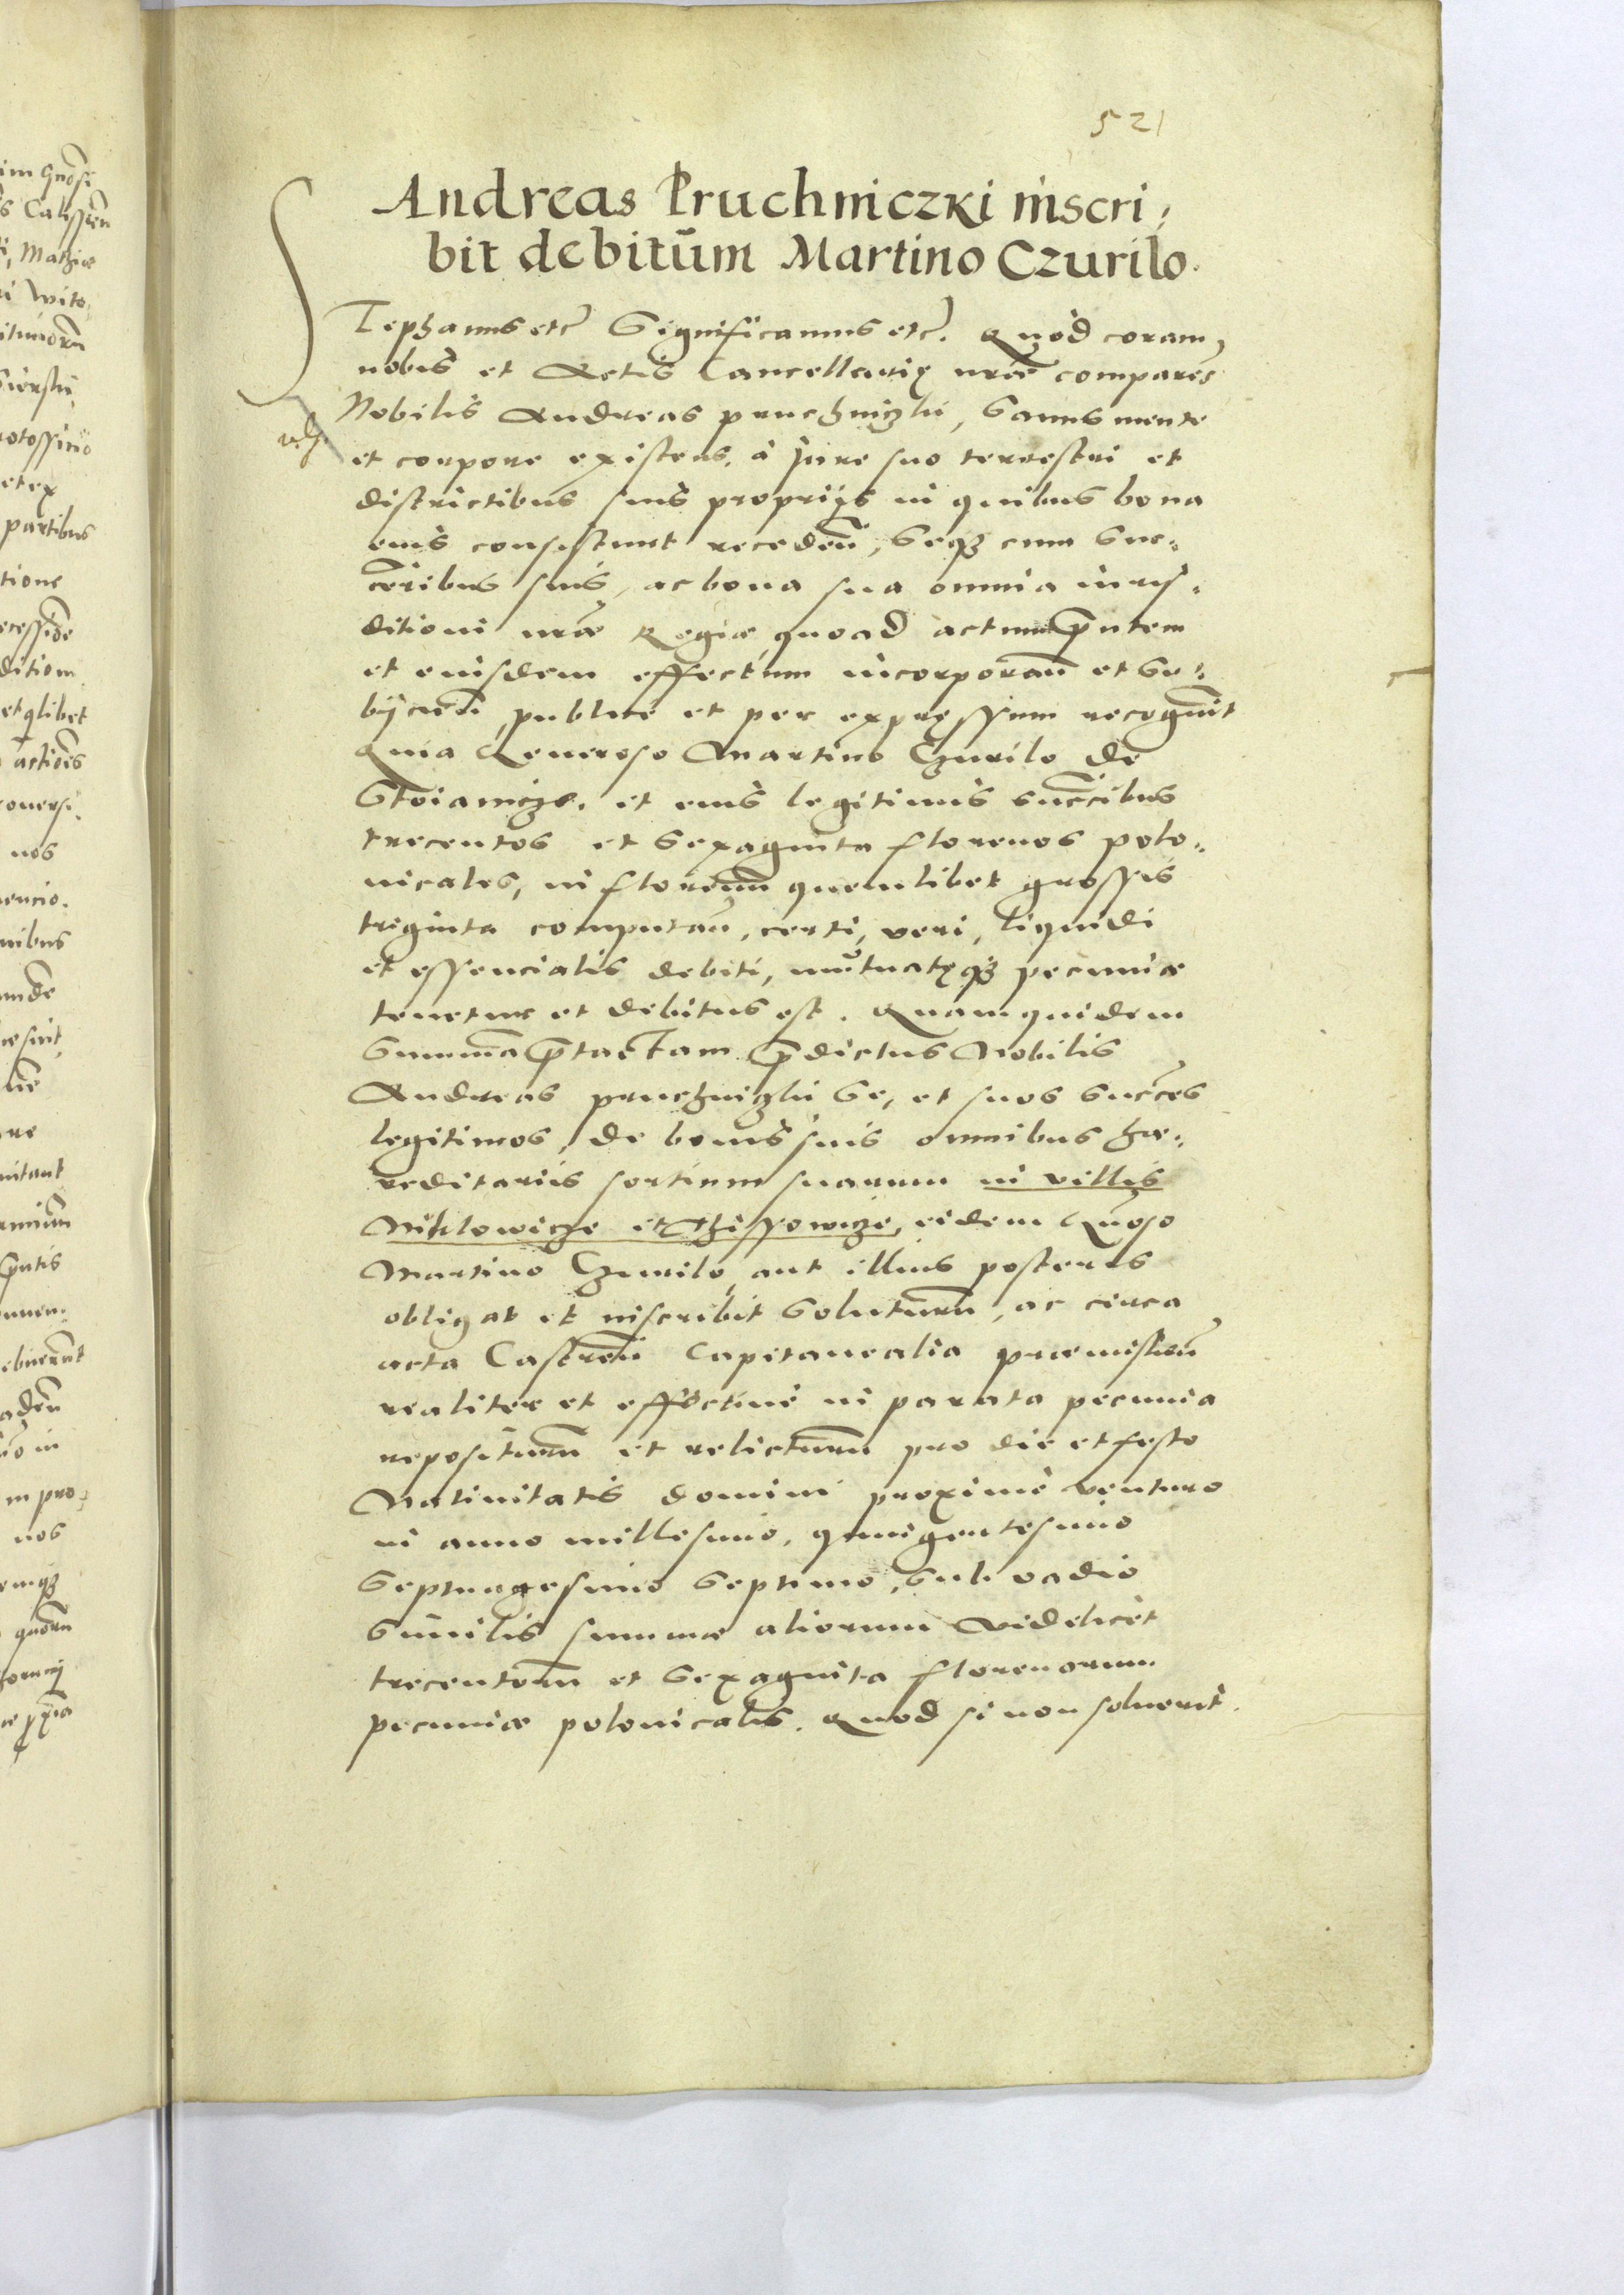 521
Andreas Pruchniczki inscri-
bit debitum Martino Czurilo.
Stephanus etc̃ Significamus etc̃. Quod coram
nobis et Actis Cancellarię nrãe comparẽs
Nobilis Andreas Pruchniczki, Sanus mente
et corpore existens, à Jure suo terrestri et
districtibus suis proprijs in quibus bona
eius consistunt recedeñ, Seqꝫ cum Suc-
cc̃ribus suis, ac bona sua omnia iuris-
ditioni nrãe Regiae quoad actum p̃ntem
et eiusdem effectum incorporañ et Su-
bijcieñ, publice et per expressum recognovit
Quia Generoso Martino Czurilo de
Stoiancze, et eius legitimis succc̃ibus
trecentos et Sexaginta florenos polo-
nicales, in florenum quemlibet grossis
triginta computañ, certi, veri, liquidi
et essencialis debiti, mutuatęqꝫ pecuniae
tenetur et debitus est. Quamquidem
Summã p̃tactam p̃dictus Nobilis
Andreas Pruchniczki Se, et suos Succc̃es
legitimos, de bonis suis omnibus hae-
reditariis sortium suarum in villis
Miklowicze et Chissowicze, eidem Gñoso
Martino Czurilo, aut illius posteris
obligat et inscribit Soluturũ, ac circa
acta Castreñ Capitanealia praemislieñ
realiter et effective in parata pecunia
repositurũ et relicturũ pro die et festo
Nativitatis domini proximè venturo
in anno millesimo, quingentesimo
Septuagesimo Septimo, Sub vadio
Similis summae aliorum videlicet
trecentorũ et Sexaginta florenorum
pecuniae polonicalis. Quod si non solverit.